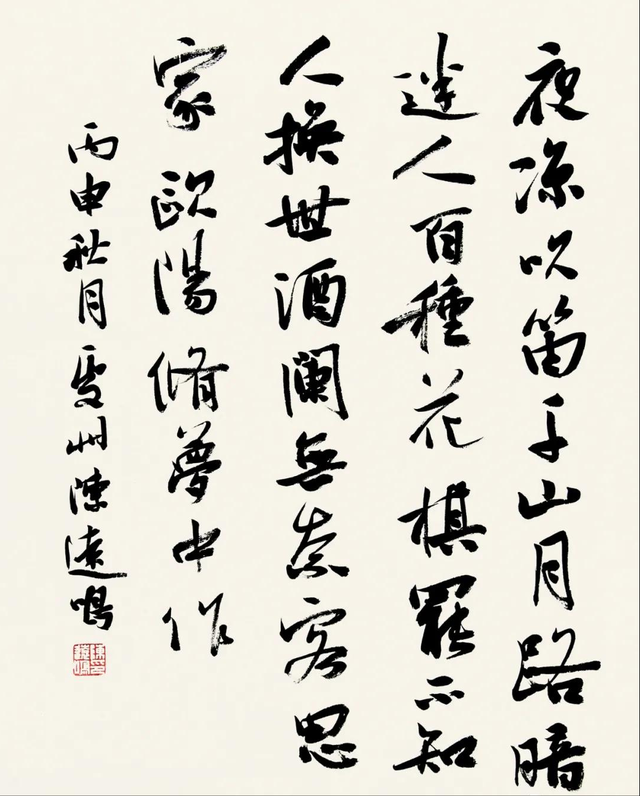 夜涼吹笛千山月路暗
迷人百種花棋罷不知
人換世酒闌無奈客思
家歐陽脩夢中作
丙申秋月 州陳遠鳴